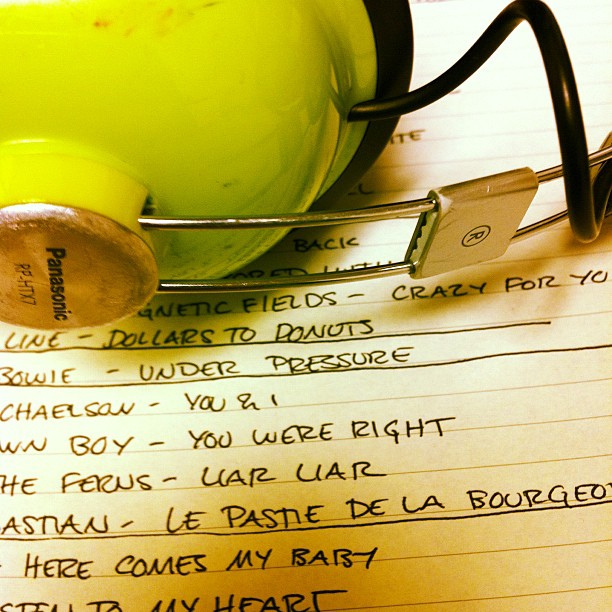 Panasonic
RP-HTX7
R
BACK
GNETIC FIELDS - CRAZY FOR YO
LINE - DOLLARS TO DONUTS
BOWIE - UNDER PRESSURE
CHAELSON - YOU & I
WN BOY - YOU WERE RIGHT
HE FERNS - LIAR LIAR
ASTIAN - LE PASTIE DE LA BOURGEOI
HERE COMES MY BABY
STEN TO MY HEART